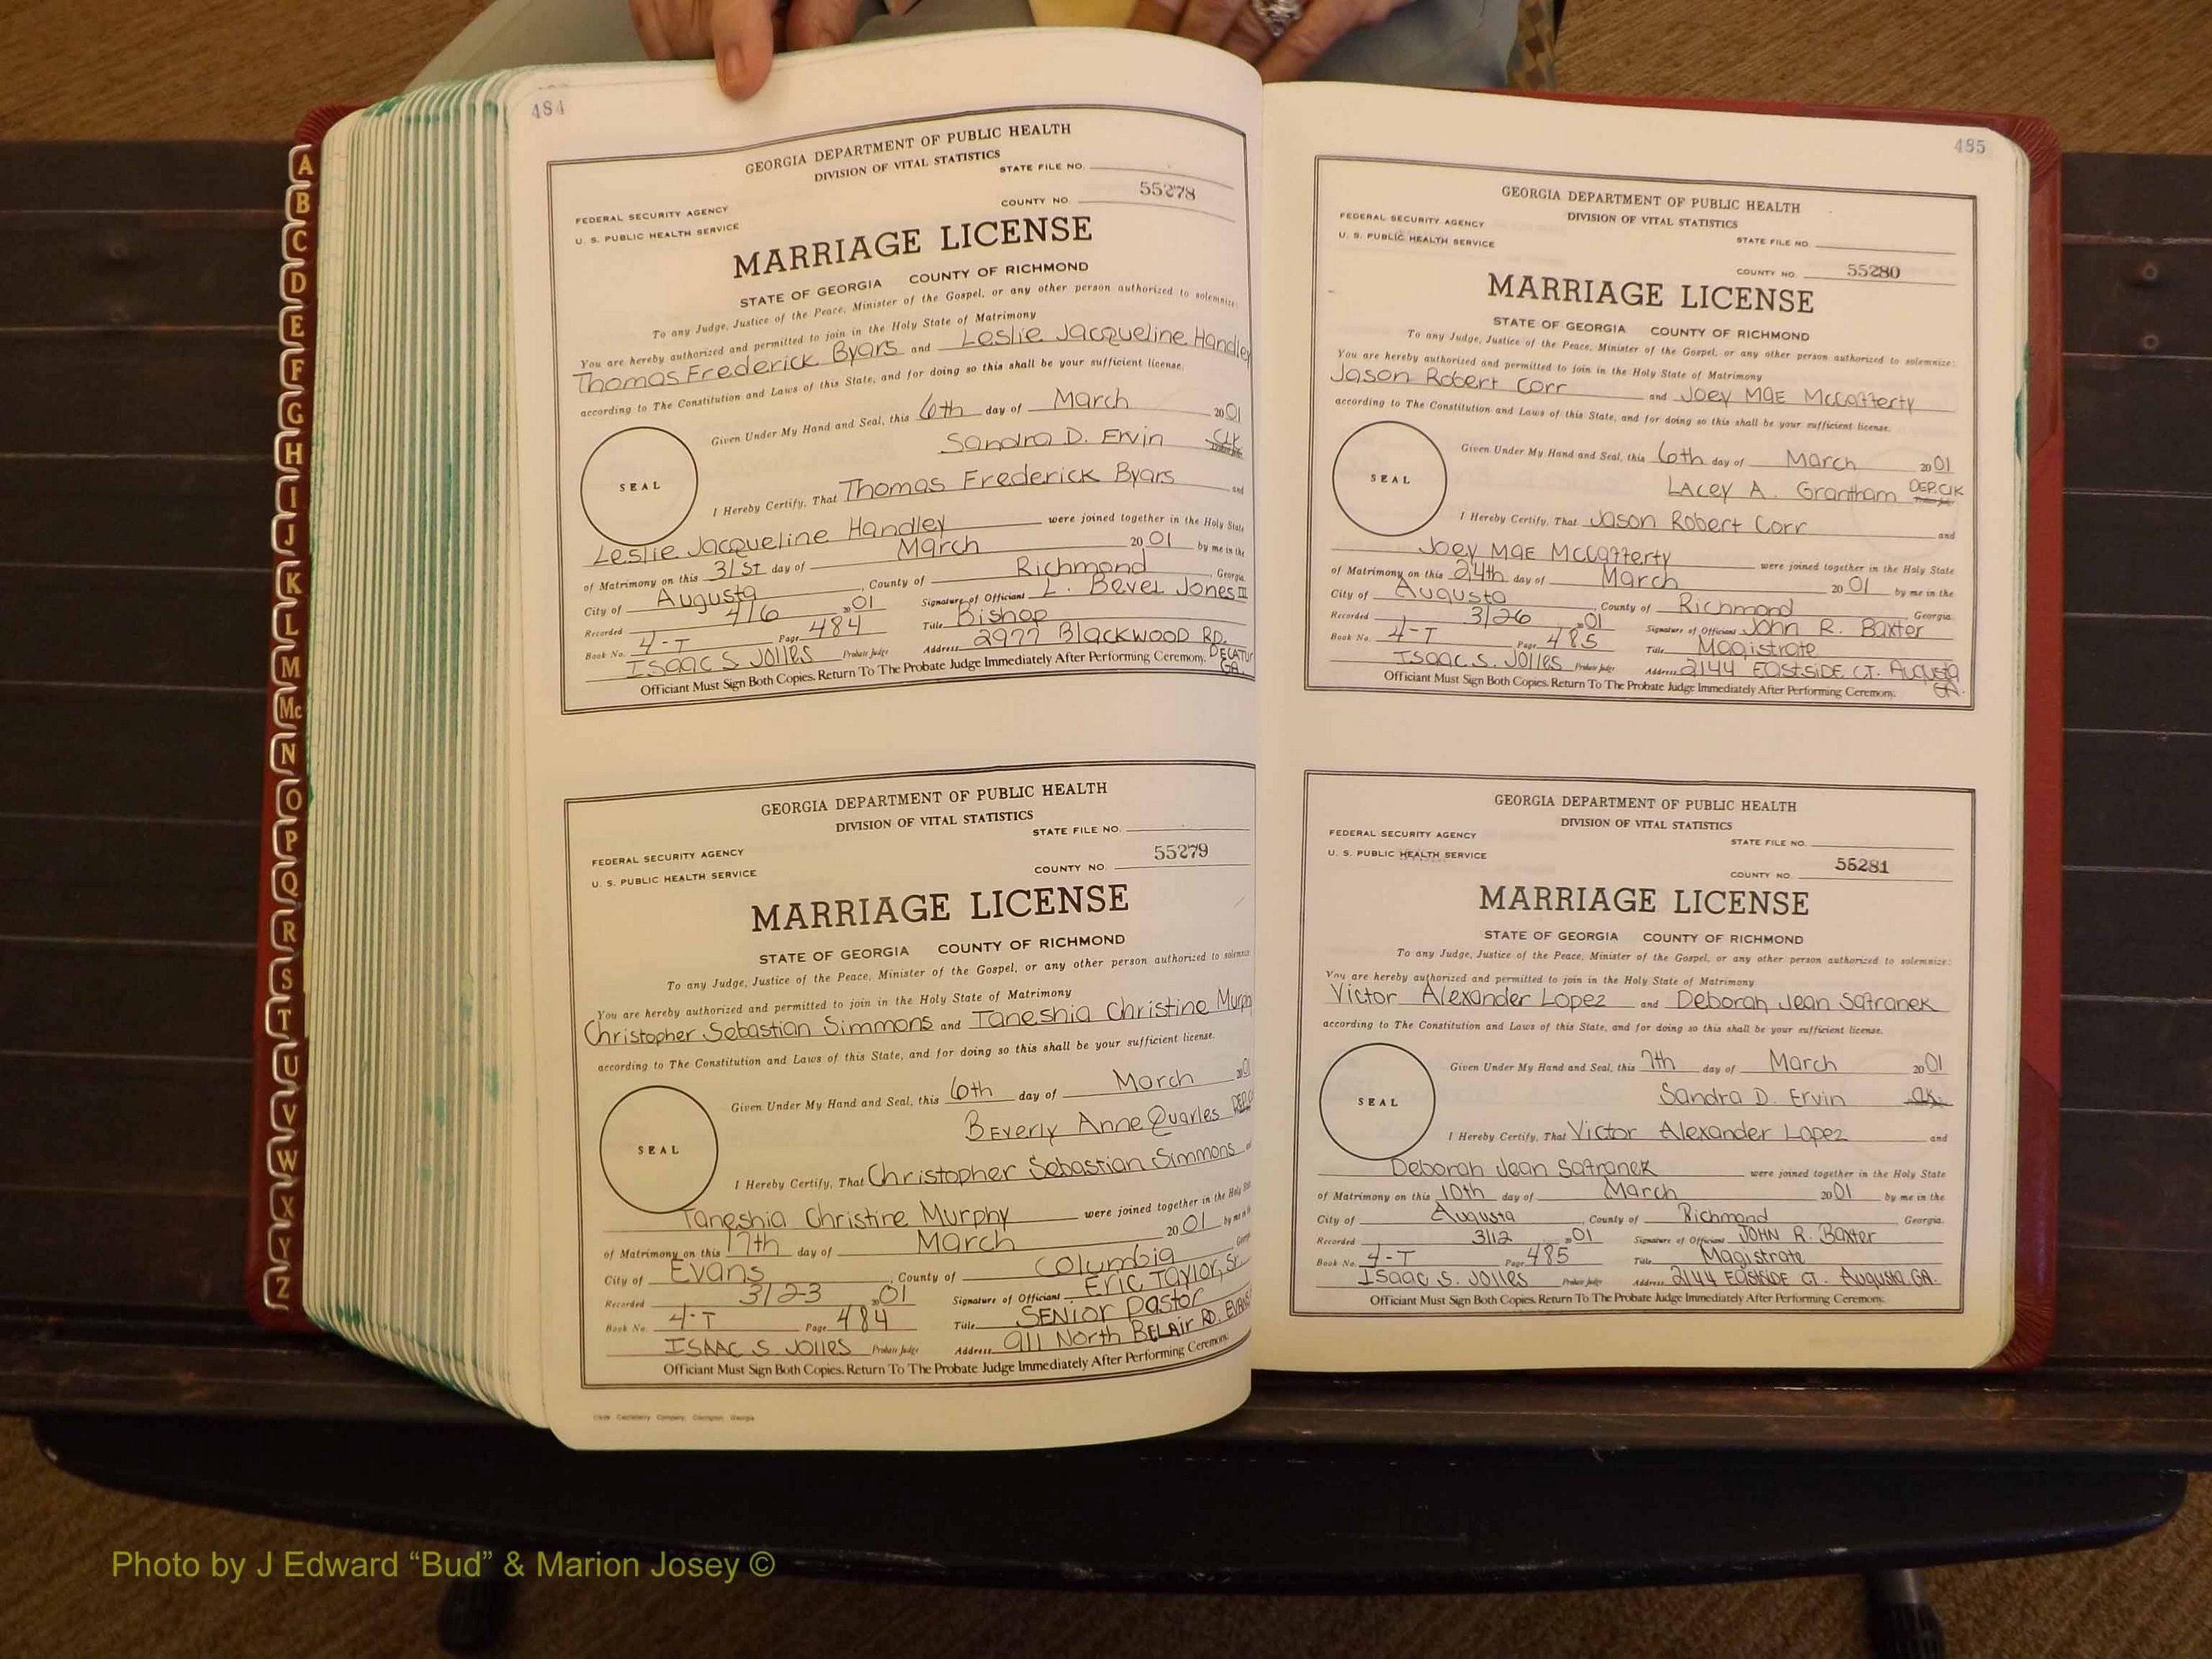 A
B
C
D
E
F
G
H
I
J
K
L
M
Mc
N
O
P
Q
R
S
T
U
V
W
X
Y
Z
484
GEORGIA DEPARTMENT OF PUBLIC HEALTH
DIVISION OF VITAL STATISTICS
STATE FILE NO.
FEDERAL SECURITY AGENCY
U. S. PUBLIC HEALTH SERVICE
COUNTY NO. 55278
MARRIAGE LICENSE
STATE OF GEORGIA COUNTY OF RICHMOND
To any Judge, Justice of the Peace, Minister of the Gospel, or any other person authorized to solemnize:
You are hereby authorized and permitted to join in the Holy State of Matrimony
Thomas Frederick Byars and Leslie Jacqueline Handley
according to The Constitution and Laws of this State, and for doing so this shall be your sufficient license.
Given Under My Hand and Seal, this 6th day of March 2001
Sandra D. Ervin CLK
SEAL
I Hereby Certify, That Thomas Frederick Byars and
Leslie Jacqueline Handley were joined together in the Holy State
of Matrimony on this 31st day of March 2001 by me in the
City of Augusta, County of Richmond, Georgia.
Recorded 4/6 2001 Signature of Officiant L. Bevel Jones III
Book No. 4-T Page 484 Title Bishop
Isaac S. Jolles Probate Judge Address 2977 Blackwood RD. DECATUR GA.
Officiant Must Sign Both Copies. Return To The Probate Judge Immediately After Performing Ceremony.
GEORGIA DEPARTMENT OF PUBLIC HEALTH
DIVISION OF VITAL STATISTICS
STATE FILE NO.
FEDERAL SECURITY AGENCY
U. S. PUBLIC HEALTH SERVICE
COUNTY NO. 55279
MARRIAGE LICENSE
STATE OF GEORGIA COUNTY OF RICHMOND
To any Judge, Justice of the Peace, Minister of the Gospel, or any other person authorized to solemnize
You are hereby authorized and permitted to join in the Holy State of Matrimony
Christopher Sebastian Simmons and Taneshia Christine Murph
according to The Constitution and Laws of this State, and for doing so this shall be your sufficient license.
Given Under My Hand and Seal, this 6th day of March 2001
Beverly Anne Quarles DEP.C
SEAL
I Hereby Certify, That Christopher Sebastian Simmons
Taneshia Christine Murphy were joined together in the Holy State
of Matrimony on this 17th day of March 2001 by me in the
City of Evans, County of Columbia Georgia
Recorded 3/23 2001 Signature of Officiant Eric Taylor, Sr.
Book No. 4-T Page 484 Title Senior Pastor
Isaac S. Jolles Probate Judge Address 911 North Belair RD. EVANS
Officiant Must Sign Both Copies. Return To The Probate Judge Immediately After Performing Ceremony.
485
GEORGIA DEPARTMENT OF PUBLIC HEALTH
DIVISION OF VITAL STATISTICS
FEDERAL SECURITY AGENCY
U. S. PUBLIC HEALTH SERVICE
STATE FILE NO.
COUNTY NO. 55280
MARRIAGE LICENSE
STATE OF GEORGIA COUNTY OF RICHMOND
To any Judge, Justice of the Peace, Minister of the Gospel, or any other person authorized to solemnize:
You are hereby authorized and permitted to join in the Holy State of Matrimony
Jason Robert Corr and Joey Mae McCafferty
according to The Constitution and Laws of this State, and for doing so this shall be your sufficient license.
Given Under My Hand and Seal, this 6th day of March 2001
Lacey A. Grantham DEP.CLK
SEAL
I Hereby Certify, That Jason Robert Corr and
Joey Mae McCafferty were joined together in the Holy State
of Matrimony on this 24th day of March 2001 by me in the
City of Augusta, County of Richmond Georgia.
Recorded 3/26 2001 Signature of Officiant John R. Baxter
Book No. 4-T Page 485 Title Magistrate
Isaac S. Jolles Probate Judge Address 2144 Eastside Ct. Augusta GA.
Officiant Must Sign Both Copies. Return To The Probate Judge Immediately After Performing Ceremony.
GEORGIA DEPARTMENT OF PUBLIC HEALTH
DIVISION OF VITAL STATISTICS
FEDERAL SECURITY AGENCY
U. S. PUBLIC HEALTH SERVICE
STATE FILE NO.
COUNTY NO. 55281
MARRIAGE LICENSE
STATE OF GEORGIA COUNTY OF RICHMOND
To any Judge, Justice of the Peace, Minister of the Gospel, or any other person authorized to solemnize:
You are hereby authorized and permitted to join in the Holy State of Matrimony
Victor Alexander Lopez and Deborah Jean Safranek
according to The Constitution and Laws of this State, and for doing so this shall be your sufficient license.
Given Under My Hand and Seal, this 7th day of March 2001
Sandra D. Ervin
SEAL
I Hereby Certify, That Victor Alexander Lopez and
Deborah Jean Safranek were joined together in the Holy State
of Matrimony on this 10th day of March 2001 by me in the
City of Augusta, County of Richmond Georgia.
Recorded 3/12 2001 Signature of Officiant JOHN R. Baxter
Book No. 4-T Page 485 Title Magistrate
Isaac S. Jolles Probate Judge Address 2144 Eastside Ct. Augusta GA.
Officiant Must Sign Both Copies. Return To The Probate Judge Immediately After Performing Ceremony.
Photo by J Edward “Bud” & Marion Josey ©